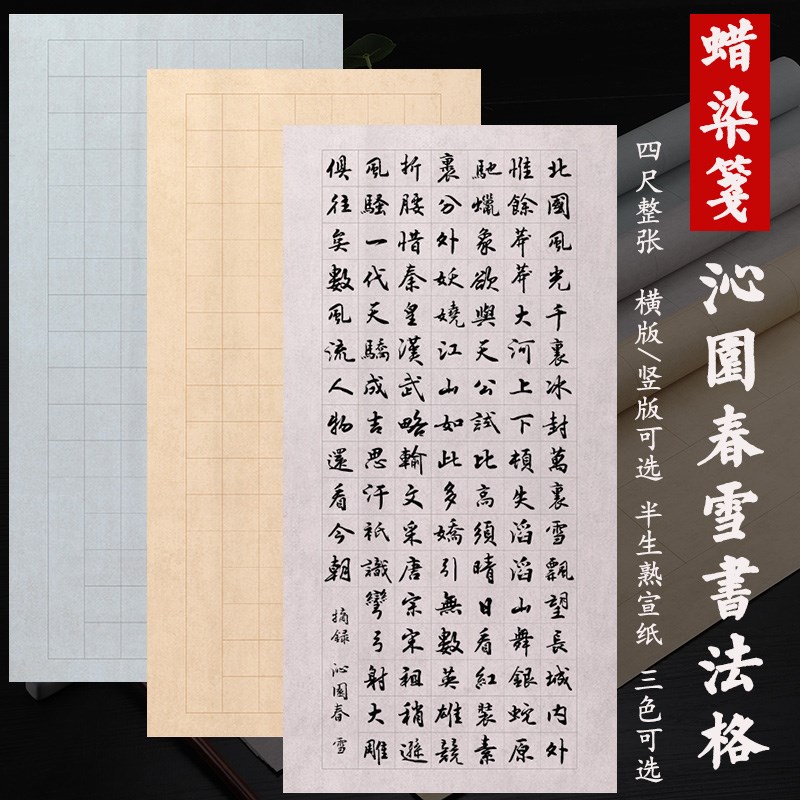 蜡染笺
沁園春雪書法格
四尺整张 横版/竖版可选 半生熟宣纸 三色可选
北國風光千裏冰封萬裏雪飄望長城内外
惟餘莽莽大河上下頓失滔滔山舞銀蛇原
馳蠟象欲與天公試比高須晴日看紅裝素
裹分外妖嬈江山如此多嬌引無數英雄競
折腰惜秦皇漢武略輸文采唐宗宋祖稍遜
風騷一代天驕成吉思汗衹識彎弓射大雕
俱往矣數風流人物還看今朝
摘録 沁園春 雪